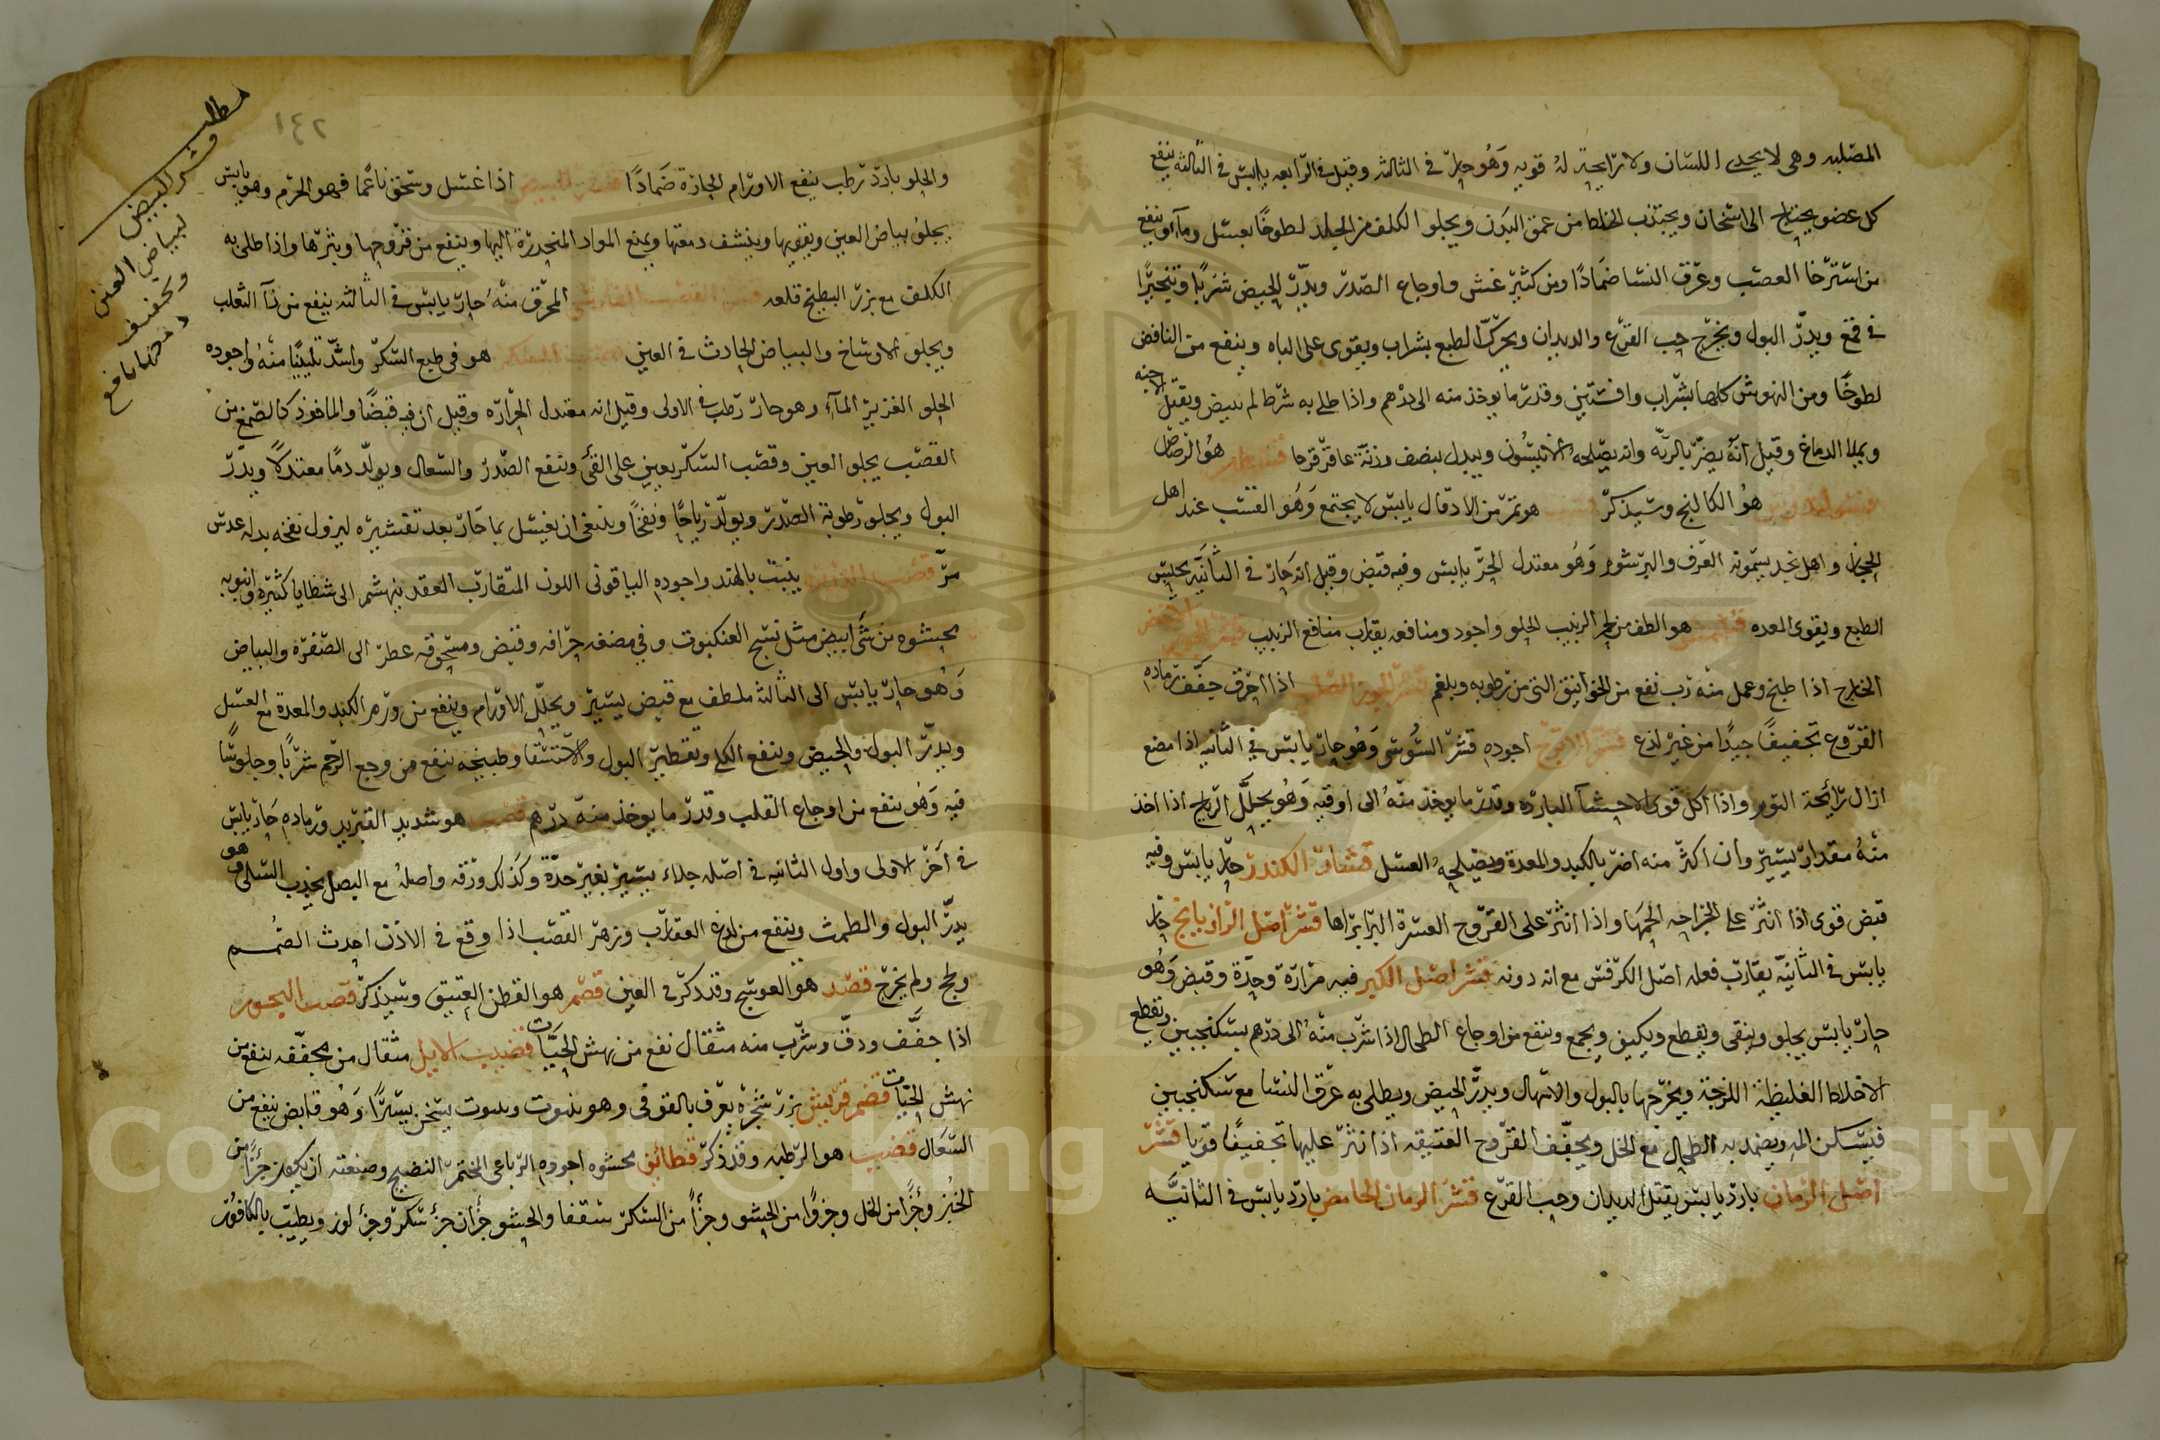 المصلبه وهى لا يحدى اللسان ولا رايحة له قويه وهو حار فى الثالثه وقيل فى الرابعه يابس فى الثالثه ينفع
كل عضو يحتاج الى اسخان ويجتذب الخلط من عمق البدن ويجلو الكلف من الجلد لطوخا بعسل وماء او ينفع
من استرخا العصب وعرق النسا ضمادا ومن كثير غشى واوجاع الصدر ويدر الحيض شربا وتبخيرا
فى قمع ويدر البول ويخرج حب القرع والديدان ويحرك الطبع بشراب ويقوى على الباه وينفع من النافض
لطوخا ومن النهوش كلها بشراب وافسنتين وقدر ما يوخذ منه الى درهم واذا طلى به شرط لم يبيض ويقتل الاجنه
ويملا الدماغ وقيل انه يضر بالريه وانه يصلحه الانيسون وبيدل بنصف وزنة عاقر قرحا هو الرصاص
هو الكالنج وسيذكر هو تمر من الادقال يابس لا يجتمع وهو القسب عند اهل
الحجاز واهل نجد يسمونه العرف والبرشوم وهو معتدل الحر يابس وفيه قبض وقيل انه حار فى الثانيه يحبس
الطبع ويقوى المعده هو الطف من لحم الزبيب الحلو واجود ومنافعه يقارب منافع الزبيب
الخارج اذا طبخ وعمل منه رب نفع من الخوانيق التى من رطوبه وبلغم قشر الجوز الصلب اذا احرق جفف رماده
القروع تجفيفا جيدا من غير لذع قشر الاترج اجوده قشر السوسى وهو حار يابس فى الثانيه اذا مضغ
ازال رايحة الثوم واذا اكل قوى الاحشا البارده وقدر ما يوخذ منه الى اوقيه وهو يحلل الرياح اذا اخذ
منه مقدار يسير وان اكثر منه اضر بالكبد والمعدة ويصلحه العسل قشار الكندر حار يابس وفيه
قبض قوى اذا انثر على الجراحه الحمها واذا انثر على القروح العسرة البرا براها قشر اصل الرازيانج حار
يابس فى الثانيه يقارب فعله اصل الكرفس مع انه دونه قشر اصل الكبر فيه مرارة وحدة وقبض وهو
حار يابس يجلو وينقى ويقطع ويكيف ويجمع وينفع من اوجاع الطحال اذا شرب منه الى درهم بسكنجبين ويقطع
الاخلاط الغليظة اللزجة ويخرجها بالبول والاسهال ويدر الحيض ويطلى به عرق النسا مع سكنجبين
فيسكن المه ويضمد به الطحال مع الخل ويجفف القروح العتيقه اذا نثر عليها تجفيفا قويا قشر
اصل الرمان بارد يابس يقتل الديدان وحب القرع قشر الرمان الحامض بارد يابس فى الثانيه
١٤٢
والحلو بارد رطب ينفع الاورام الحارة ضمادا قشر البيض اذا غسل وسحق ناعما فهو الحرم وهو يابس
يجلو بياض العين ويقويها وينشف دمعتها ويمنع المواد المنحدرة اليها وينفع من قروحها وبثرها واذا طلى به
الكلف مع بزر البطيخ قلعه قشر القصب الفارسى المحرق منه حار يابس فى الثالثه ينفع من داء الثعلب
ويجلو الاوساخ والبياض الحادث فى العين قصب السكر هو فى طبع السكر واشد تليينا منه واجوده
الحلو الغزير الماء وهو حار رطب فى الاولى وقيل انه معتدل الحراره وقيل ان فيه قبضا والماخوذ كالصمغ من
القصب يجلو العين وقصب السكر يعين على القئ وينفع الصدر والسعال ويولد دما معتدلا ويدر
البول ويجلو رطوبة الصدر ويولد رياحا ونفخا وينبغى ان يغسل بما حار بعد تقشيره ليزول نفخه بدله عدس
مر قصب الذريره ينبت بالهند واجوده الياقوتى اللون المتقارب العقد يتهشم الى شظايا كثيره وانبوبه
محشوه من شئ ابيض مثل نسج العنكبوت وفى مضغه حرافه وقبض ومسحوقه عطر الى الصفرة والبياض
وهو حار يابس الى الثالثة ملطف مع قبض يسير ويحلل الاورام وينفع من ورم الكبد والمعدة مع العسل
ويدر البول والحيض وينفع الكلى وتقطير البول والاستسقا وطبيخه ينفع من وجع الرحم شربا وجلوسا
فيه وهو ينفع من اوجاع القلب وقدر ما يوخذ منه درهم قصب هو شديد التبريد ورماده حار يابس
فى اخر الاولى واول الثانيه فى اصله جلاء يسير بغير حدة وكذلك ورقه واصله مع البصل يجذب السلى وهو
يدر البول والطمث وينفع من لدغ العقارب وزهر القصب اذا وقع فى الاذن احدث الصمم
ولحج ولم يخرج قصد هو العوسج وقد ذكر فى العين قصم هو القطن العتيق وسيذكر قصب البحور
اذا جفف ودق وشرب منه مثقال نفع من نهش الحيات قضيب الايل مثقال من مجففه ينفع من
نهش الحيات قضم قريش بزر شجره يعرف بالفوفى وهو ينبوت وينبوت يسخن يسيرا وهو قابض ينفع من
السعال قضيب هو الرطبه وقد ذكر قطائف محشوه اجوده الرباعى المختمر النضيج وصنعته ان يعجن جزا من
الخبز وجزا من الخل وجزوا من الحشو وجزا من السكر سقفا والحشو جزان جز سكر وجز لوز ويطيب بالكافور
مطلب
قشر البيض
لبياض العين
وتجفيف
دمعتها نافع
Copyright © King Saud University
1957